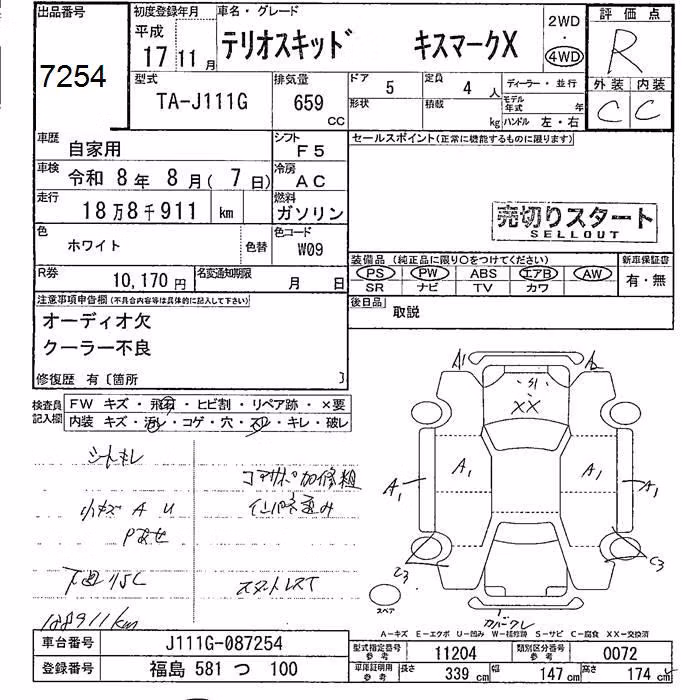 出品番号
7254
初度登録年月
平成
17 11月
車名・グレード
テリオスキッド キスマークX
2WD
・
4WD
評価点
R
外装 内装
C C
型式
TA-J111G
排気量
659 CC
ドア
5
定員
4 人
ディーラー・並行
形状
積載
kg
モデル年式
年
ハンドル 左・右
車歴
自家用
シフト
F5
車検
令和 8年 8月( 7日)
冷房
AC
走行
18万8千911 km
燃料
ガソリン
色
ホワイト
色替
色コード
W09
R券
10,170円
名変通知期限
月 日
セールスポイント(正常に機能するものに限ります)
売切りスタート
SELLOUT
装備品 (純正品に限り○をつけてください)
PS PW ABS エアB AW
SR ナビ TV カワ
新車保証書
有・無
後日品
取説
注意事項申告欄(不具合内容等は具体的に記入して下さい)
オーディオ欠
クーラー不良
修復歴 有〔箇所 〕
検査員記入欄
FW キズ・飛石・ヒビ割・リペア跡・×要
内装 キズ・汚レ・コゲ・穴・スレ・キレ・破レ
シートキレ
コアサポ加修粗
小キズ A U
インパネ歪み
下廻りS C
スタートレスT
188911km
A1
S1
XX
A1
A1
A1
A1
C3
C3
スペア
カバークレ
A-キズ E-エクボ U-凹み W-補修跡 S-サビ C-腐食 XX-交換済
車台番号
J111G-087254
登録番号
福島 581 つ 100
型式指定番号
参考
11204
類別区分番号
参考
0072
車庫証明用
参考
長さ
339 cm
幅
147 cm
高さ
174 cm